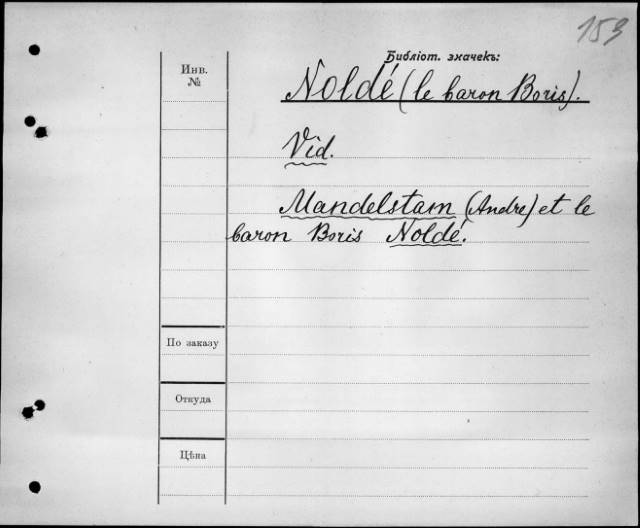 153
Библіот. значекъ:
Инв.
№
Noldé (le baron Boris).
Vid.
Mandelstam (Andre) et le
baron Boris Noldé.
По заказу
Откуда
Цѣна